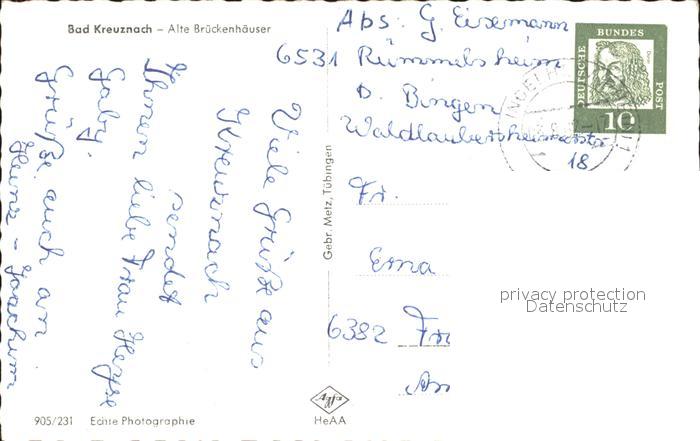 Bad Kreuznach – Alte Brückenhäuser
Abs: G. Eisemann
6531 Rümmelsheim
b. Bingen
Waldlaubersheimerstr.
18
DEUTSCHE BUNDES POST
10
Viele Grüße aus
Kreuznach
sendet
Ihnen liebe Frau Heyse
Gaby.
Grüße auch an
Heinz-Joachim
Gebr. Metz, Tübingen
Fr.
Erna
6382 Fr
privacy protection
Datenschutz
Agfa
HeAA
905/231 Echte Photographie